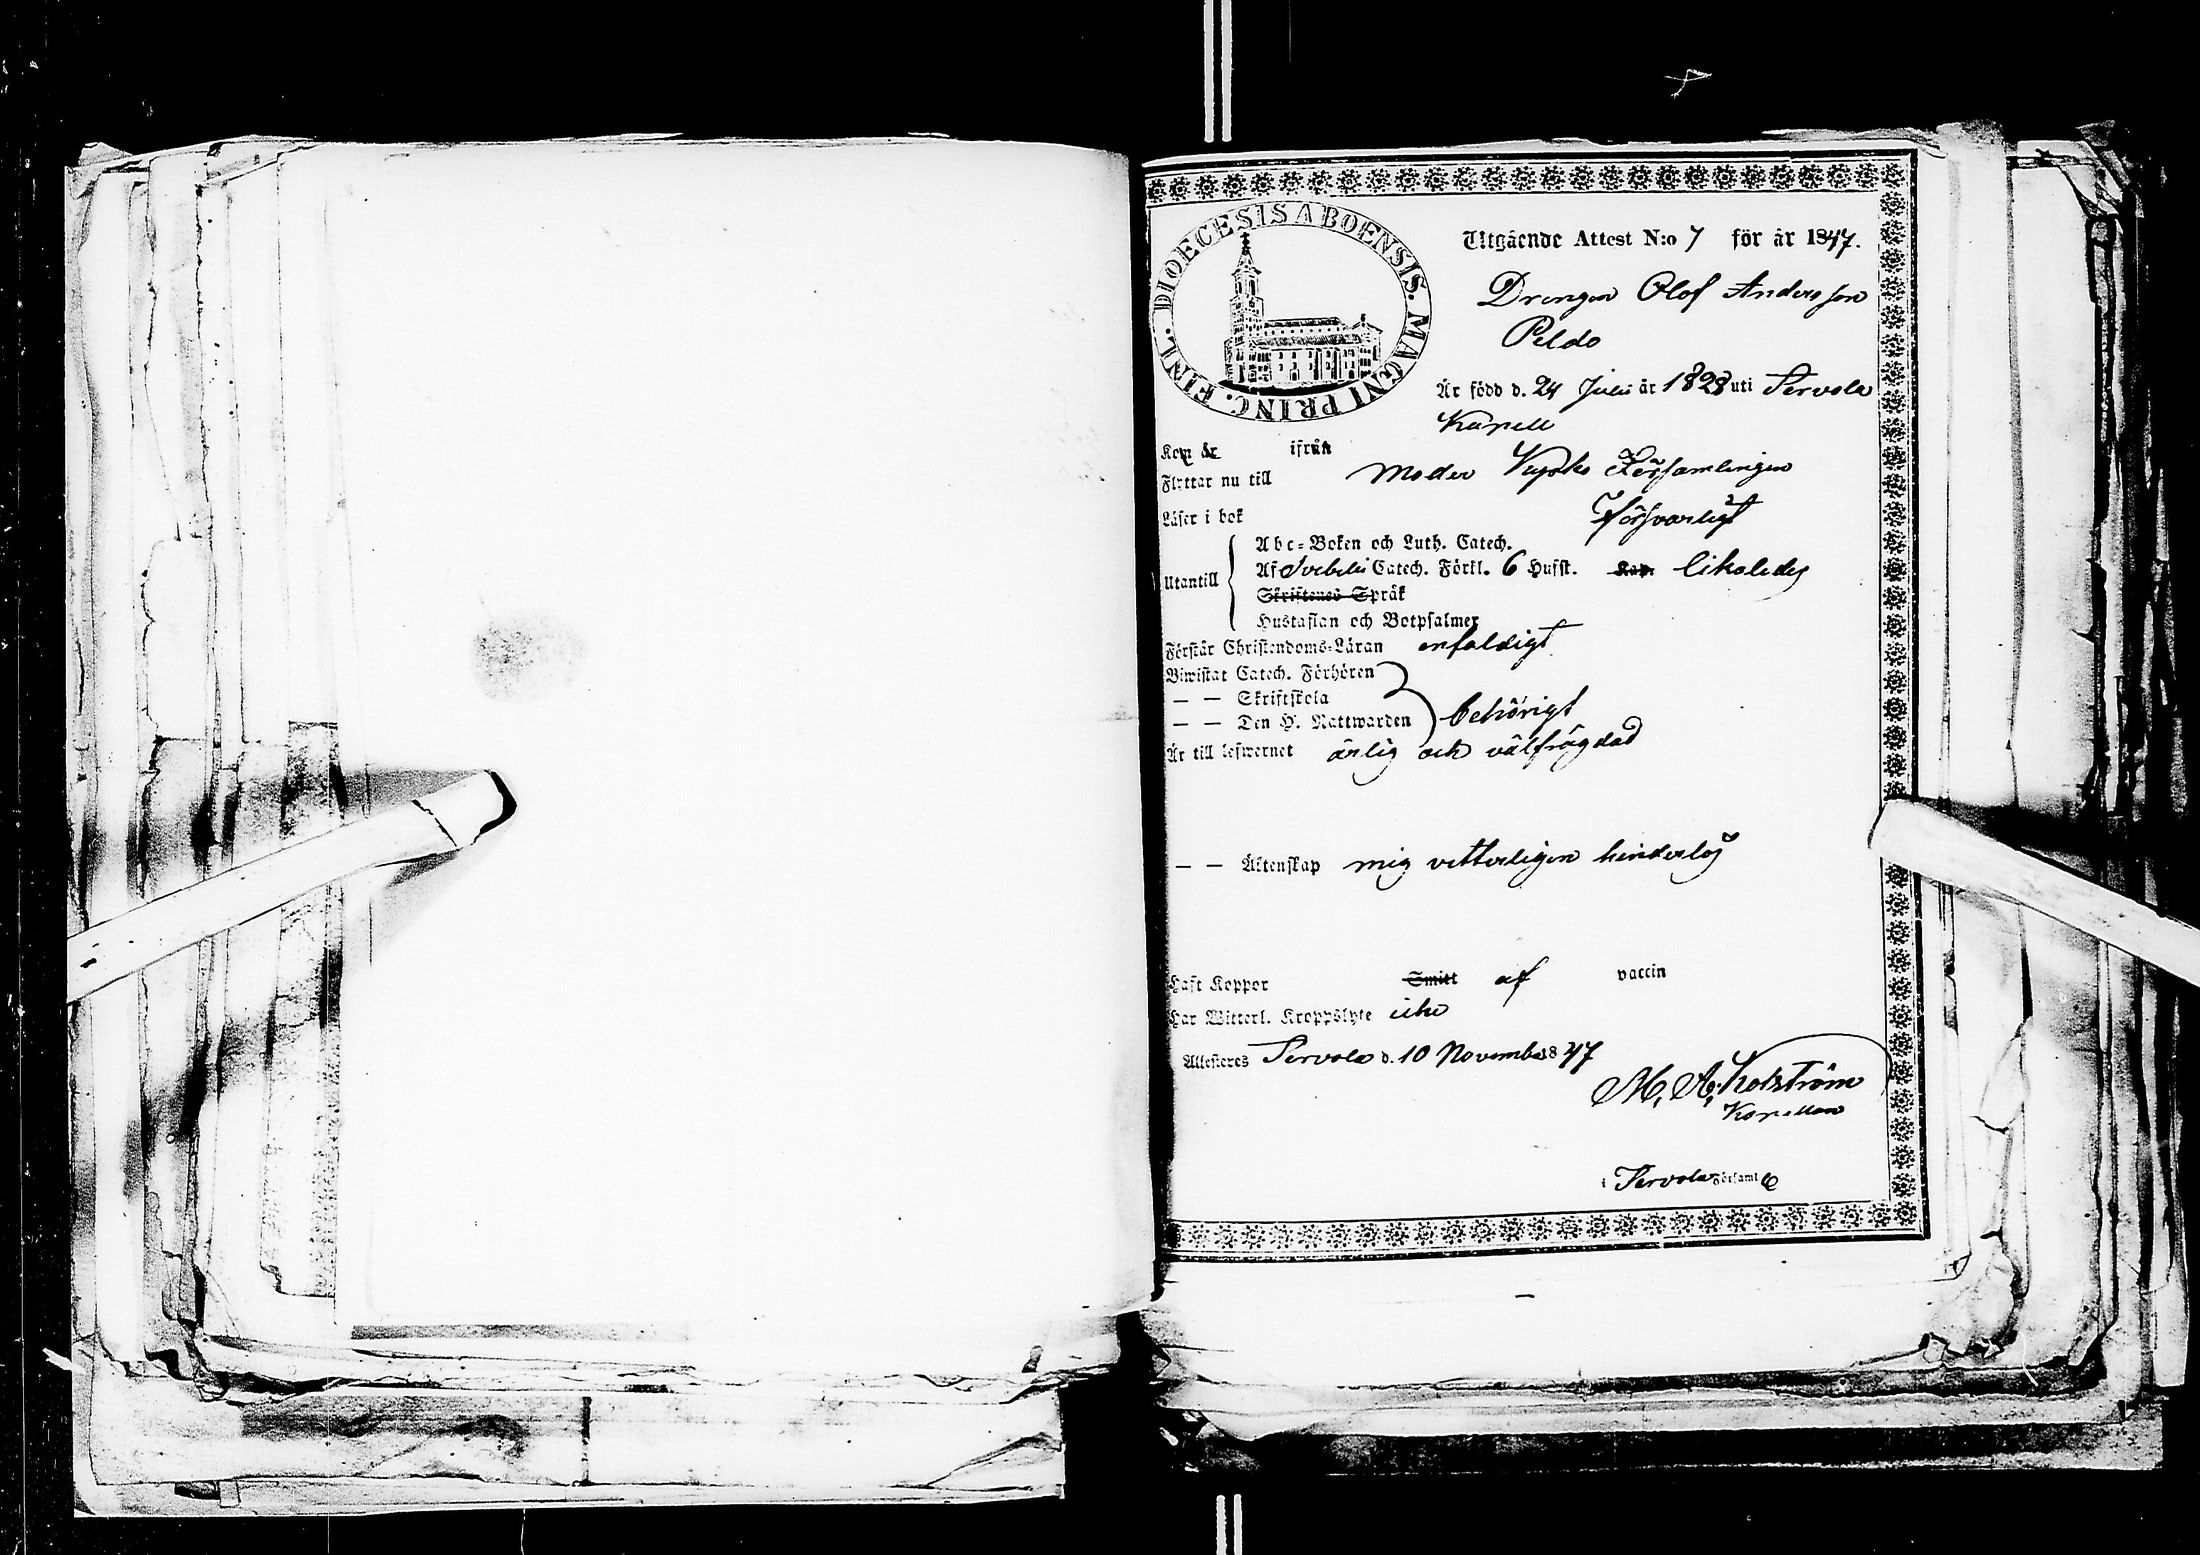 DIOECESIS ABOENSIS. MAGNI PRINC. FINL.
Utgående Attest N:o 7 för år 1847.
Drengen Olof Andersson
Peldo
Är född d. 24 Julii år 1828 uti Tervola
Kapell
Kom år ifrån
Flyttar nu till Moder Kyrko Församlingen
Läser i bok Försvarligt
Utantill
Abc-Boken och Luth. Catech.
Af Svebelii Catech. Förkl. 6 Hufst. Kap. likaledes
Skriftenes Språk
Hustaflan och Botpsalmer
Förstår Christendoms-Läran enfaldigt
Biwistat Catech. Förhören
— — Skriftskola
— — Den H. Nattwarden behörigt
Är till lefwernet ärlig och välfrägdad
— — Äktenskap mig vetterligen hinderlös
Haft Koppor Smitt af vaccin
Har Witterl. Kroppslyte icke
Attesteras Tervola d. 10 November 1847
M. A. Holström
Kapellan
i Tervola Församl